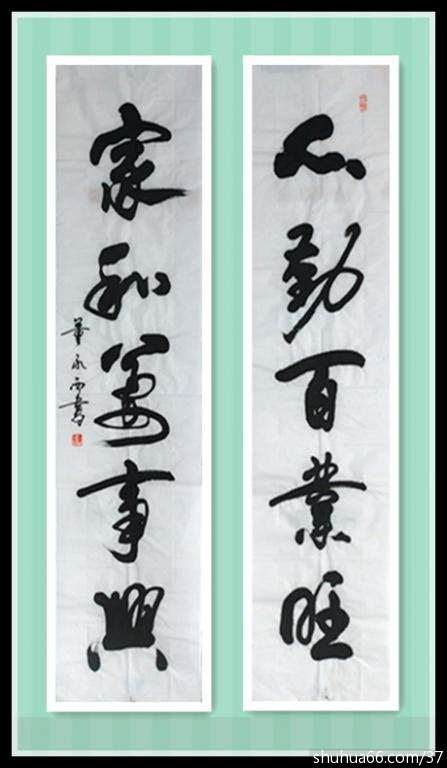 人勤百業旺
家和萬事興
董永西
shuhua66.com/37